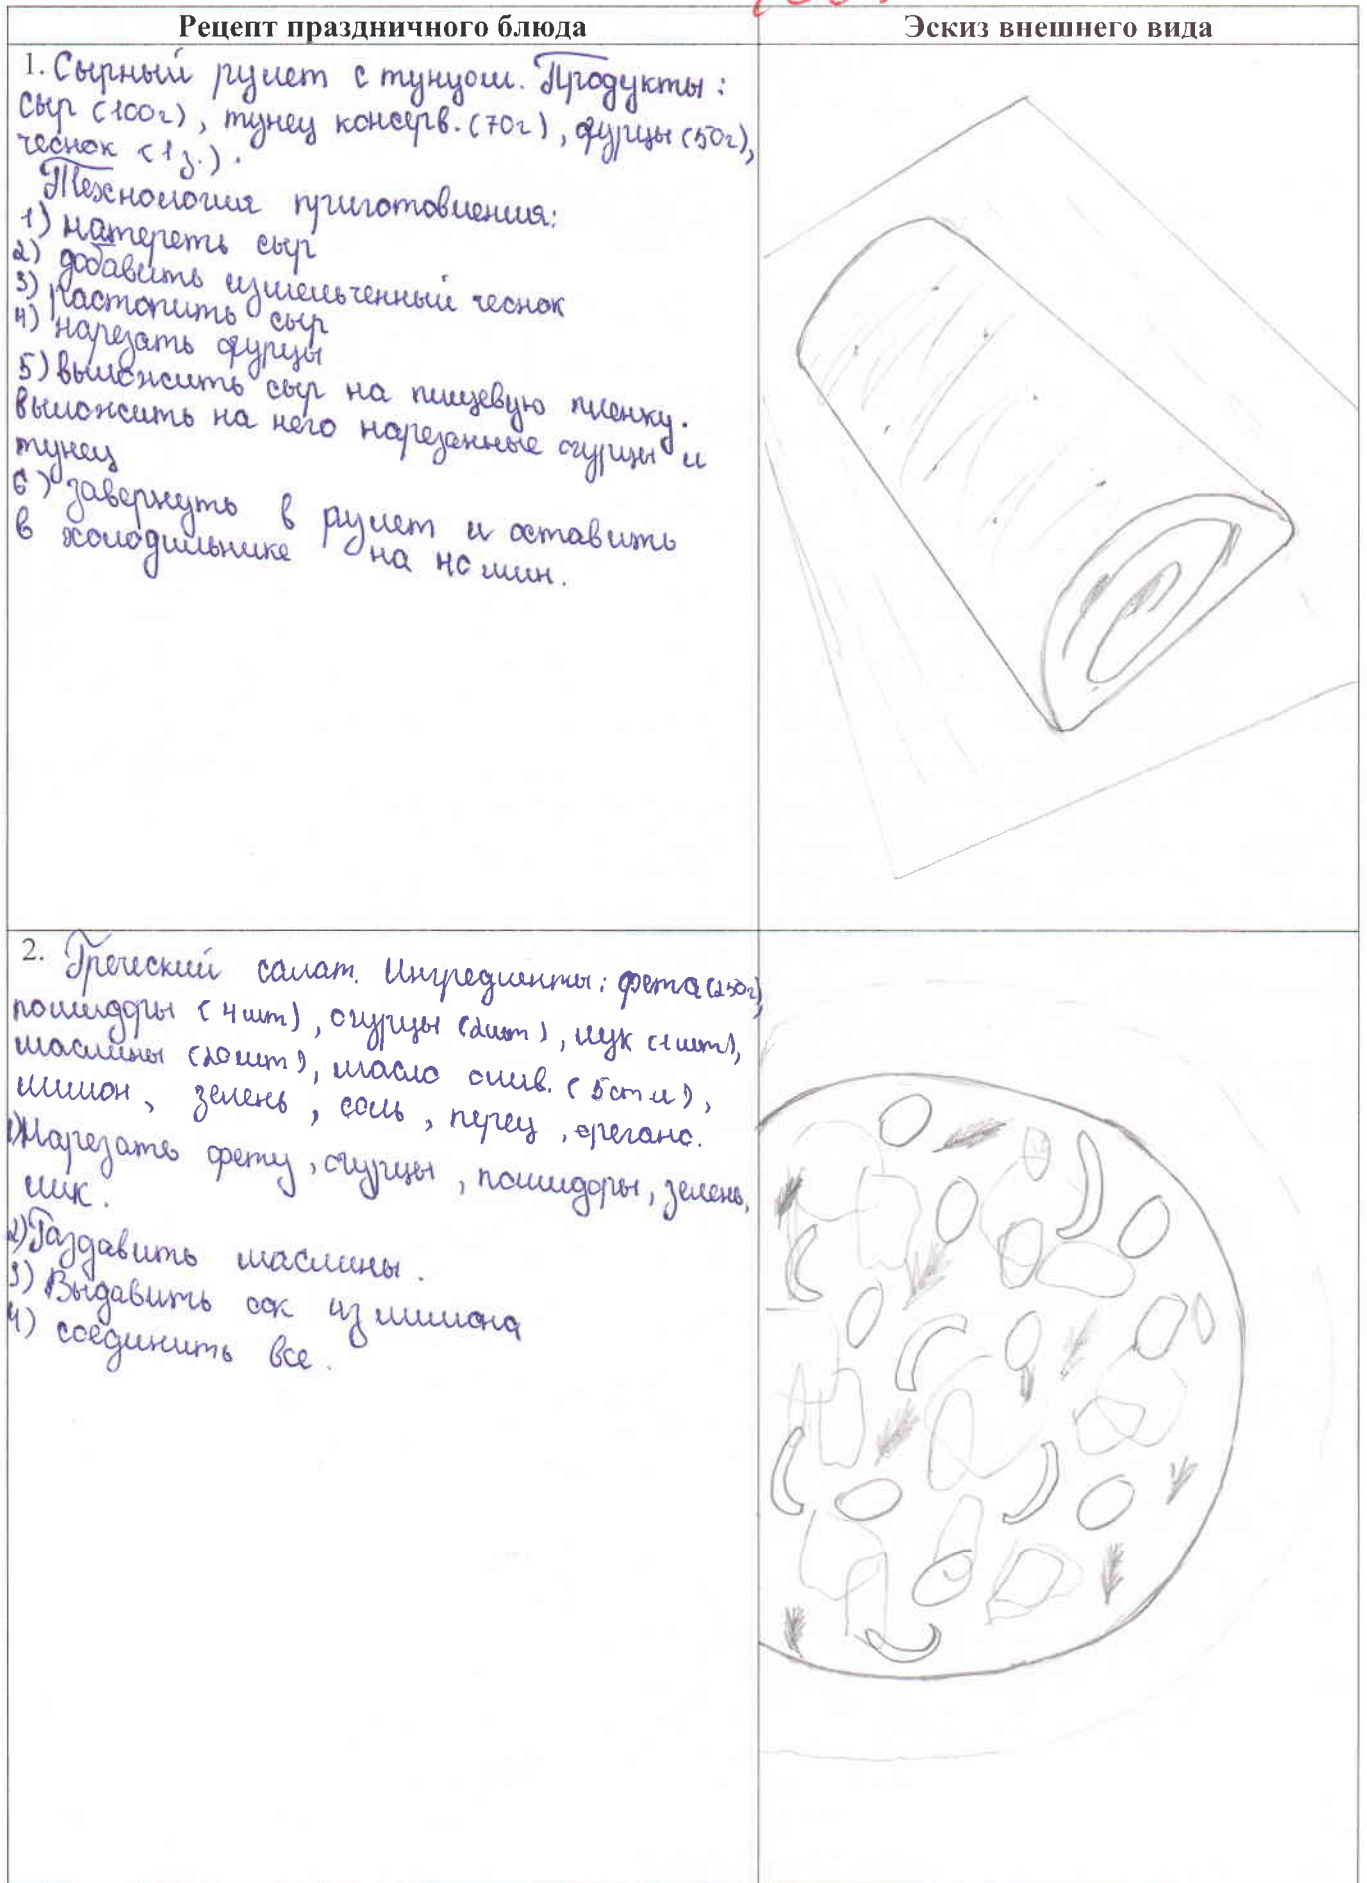 Рецепт праздничного блюда
Эскиз внешнего вида
1. Сырный рулет с тунцом. Продукты:
сыр (100г), тунец консерв. (70г), огурцы (50г),
чеснок (1 з.).
Технология приготовления:
1) натереть сыр
2) добавить измельченный чеснок
3) растопить сыр
4) нарезать огурцы
5) выложить сыр на пищевую пленку.
выложить на него нарезанные огурцы и
тунец
6) завернуть в рулет и оставить
в холодильнике на мин.
2. Греческий салат. Ингредиенты: фета (250г),
помидоры (4 шт), огурцы (2шт), лук (1 шт),
маслины (20 шт), масло олив. (5 ст л),
лимон, зелень, соль, перец, орегано.
1) Нарезать фету, огурцы, помидоры, зелень,
лук.
2) Раздавить маслины.
3) Выдавить сок из лимона
4) соединить все.